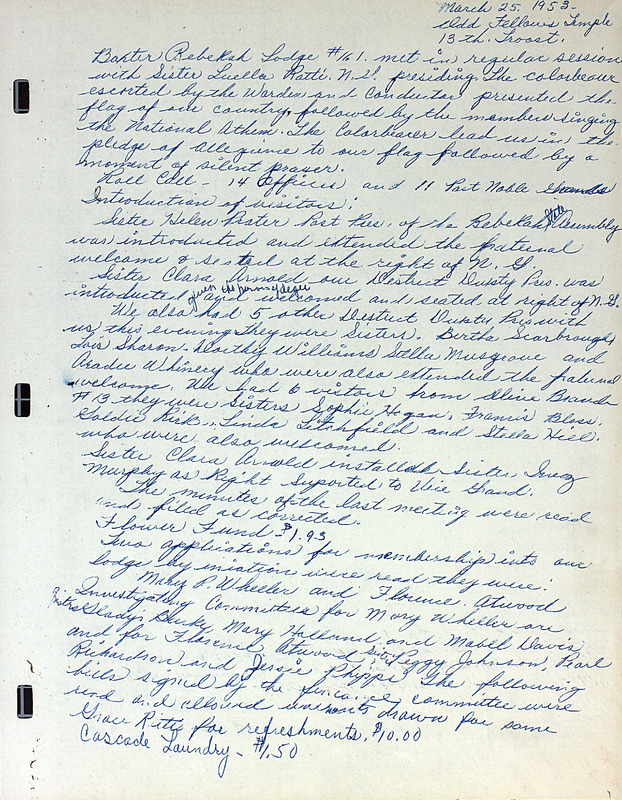 March 25, 1953-
Odd Fellows Temple
13-th. Troost.
Baxter Rebekah Lodge #161. met in regular session
with Sister Luella Ratti. N.G. presiding. The colorbearer
escorted by the Warden and Conductor presented the
flag of our country, followed by the members singing
the National Athem. The Colorbearer lead us in the
pledge of allegiance to our flag followed by a
moment of silent prayer.
Roll Call - 14 Officers and 11 Past Noble Grands
Introduction of visitors:
Sister Helen Prater Past Pres. of the Rebekah State Assembly
was introduced and extended the fraternal
welcome & seated at the right of N. G.
Sister Clara Arnold our District Duputy Pres. was
introduced and welcomed and seated at right of N.G.
We also had 5 other District Duputy Pres with
us this evening they were Sisters. Bertha Scarbrough
Lois Sharon. Dorthy Williams Stella Musgrove and
Whinery who were also extended the fraternal
welcome. We had 6 visitors from Olive Branch
#13 they were Sisters Sophie Hogan. Francis Bloss.
Goldie Kirk. Linda Litchfield and Stella Hill.
who were also welcomed.
Sister Clara Arnold installed Sister Inez
Murphy as Right Suported to Vice Grand.
The minutes of the last meeting were read
and filed as corrected.
Flower Fund $1.93
Two applications for membership into our
lodge by iniation were read they were:
Mary P. Wheeler and Florence. Atwood
Investigating Committee for Mary Wheeler are
Sisters Gladys Burke, Mary Holland and Mabel Davis
and for Florence Atwood Sisters Peggy Johnson, Pearl
Richardson and Jessie Phipps. The following
bills signed by the finance committee were
read and allowed warrents drawn for same
Grace Ritts for refreshments. $10.00
Cascade Laundry - $1.50